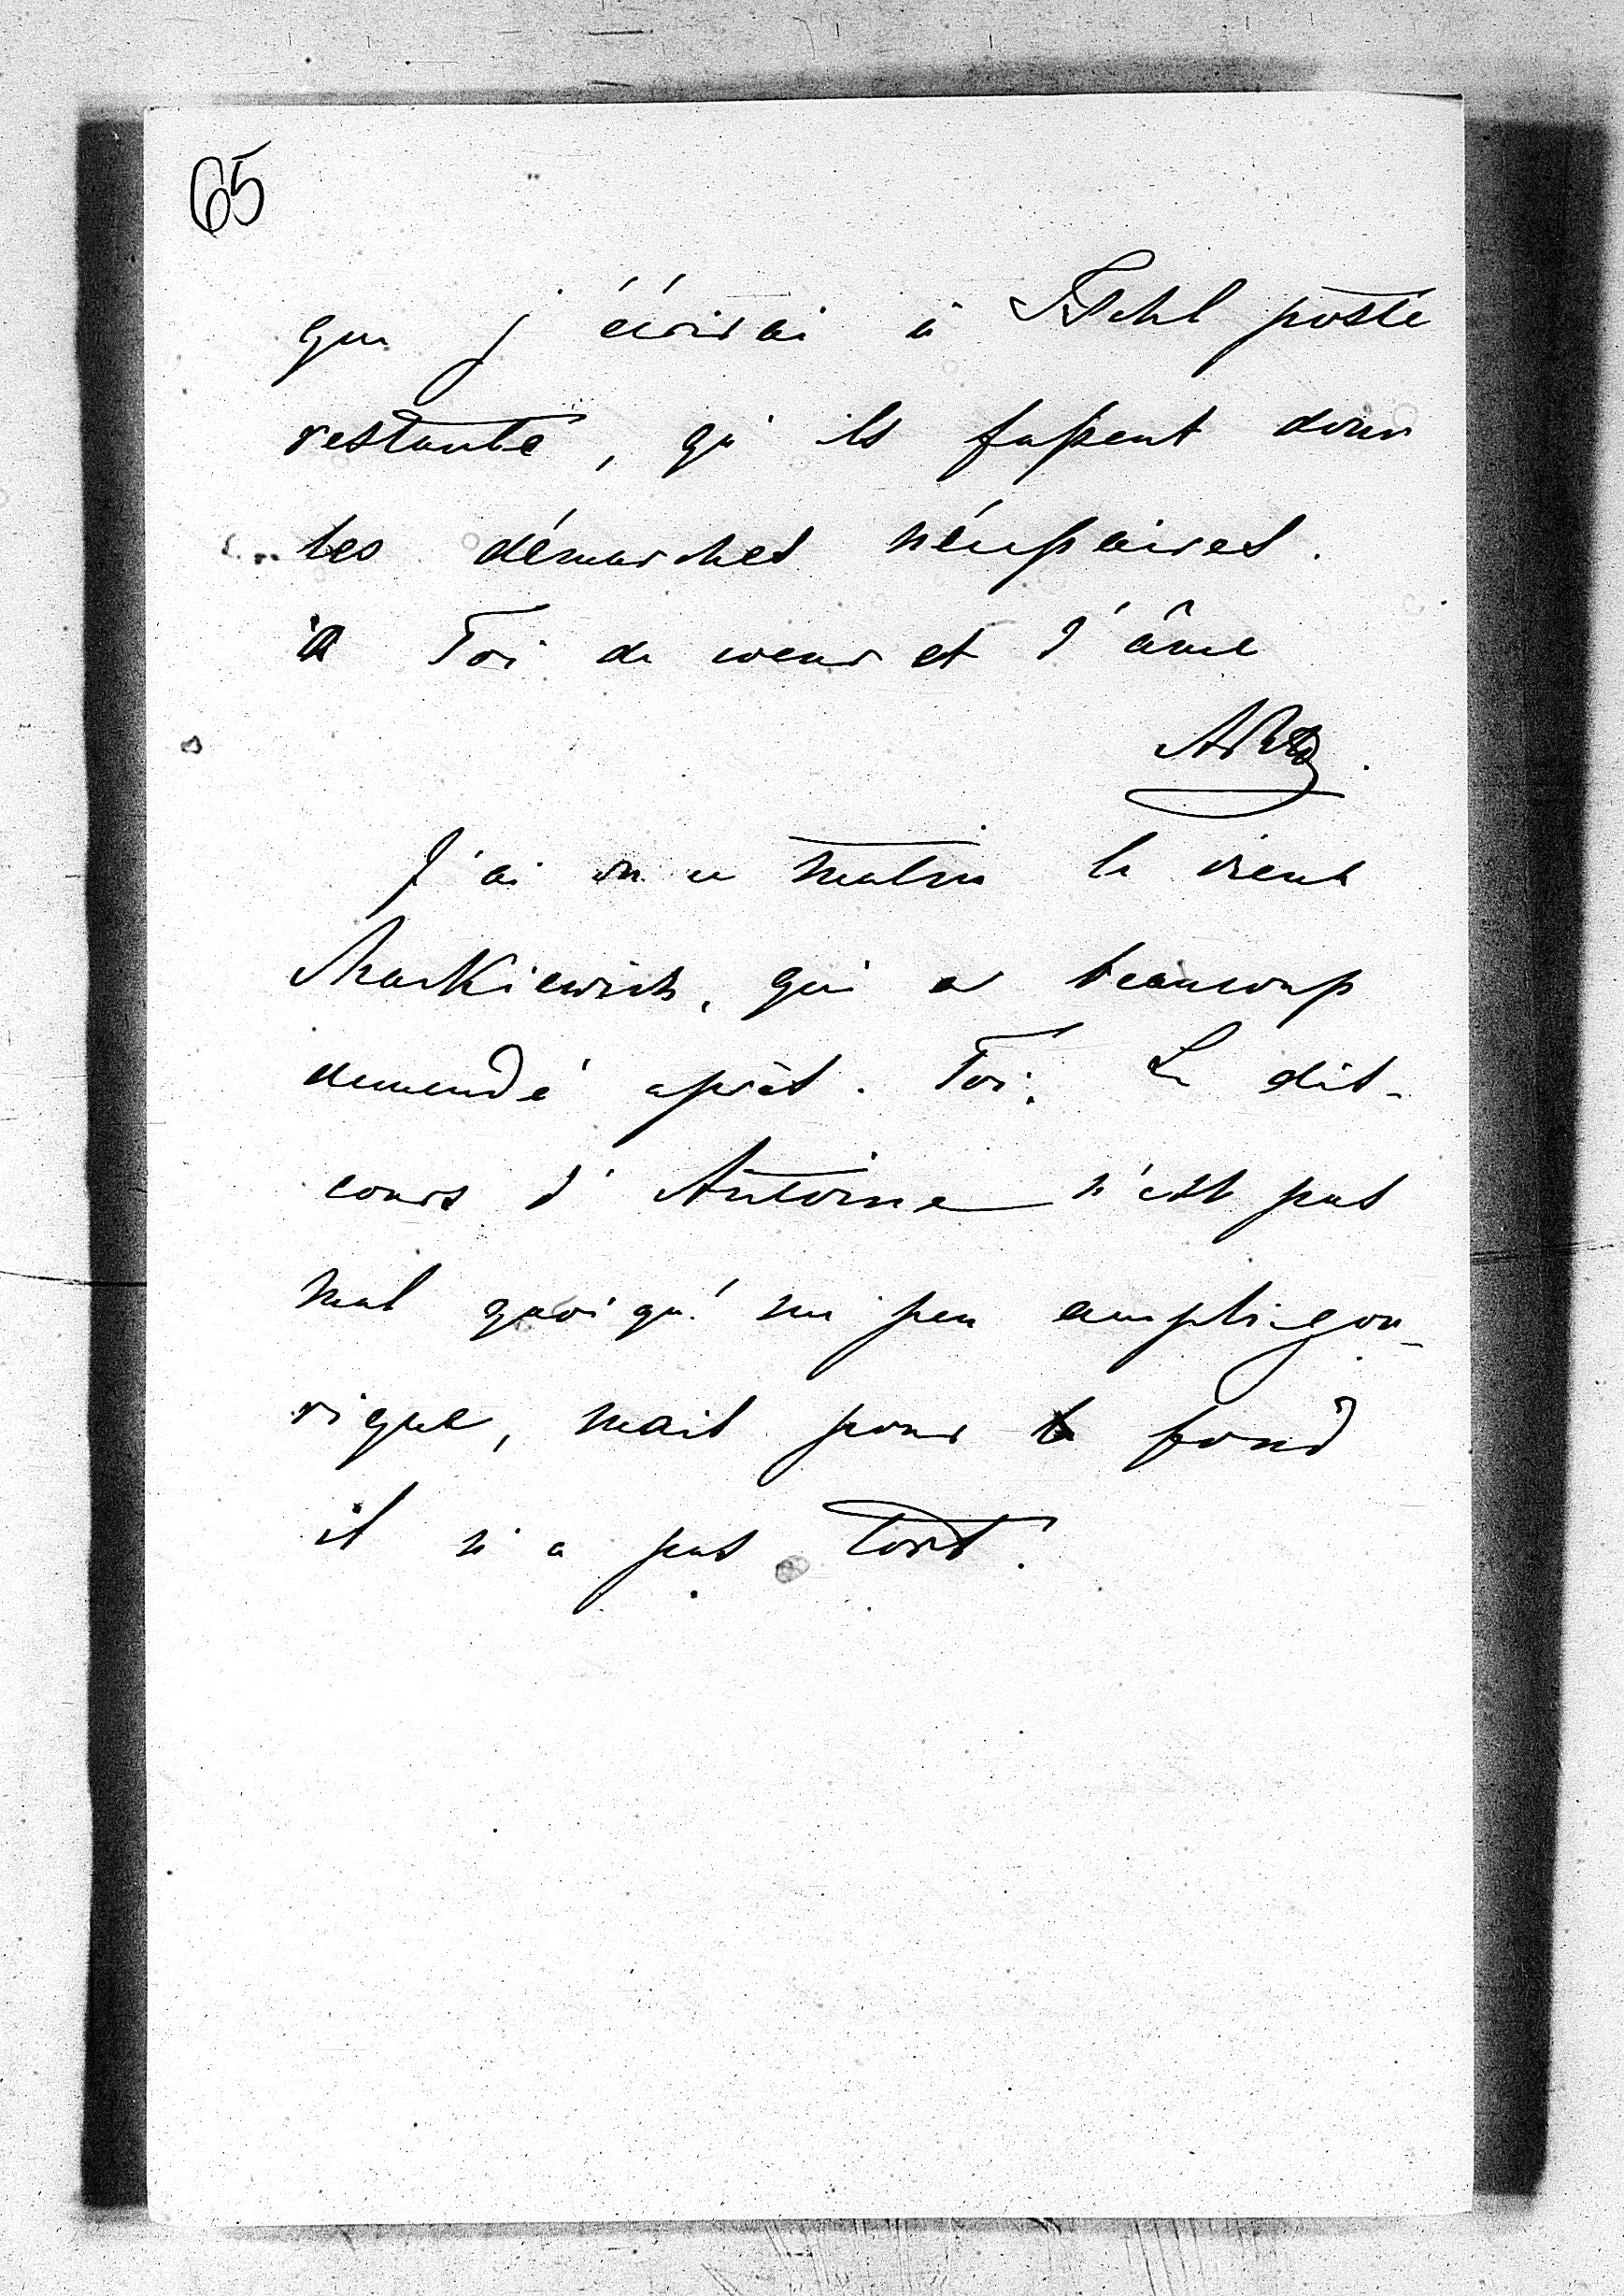 65
que j'écrirai à Ischl poste
restante, qu'ils fassent donc
les démarches nécessaires.
à Toi de coeur et d'âme
J'ai vu ce matin le vieux
Markiewicz, qui a beaucoup
demandé après Toi. Le dis-
cours d'Antoine n'est pas
mal quoiqu'un peu amphigou-
rique, mais pour le fond
il n'a pas tort.